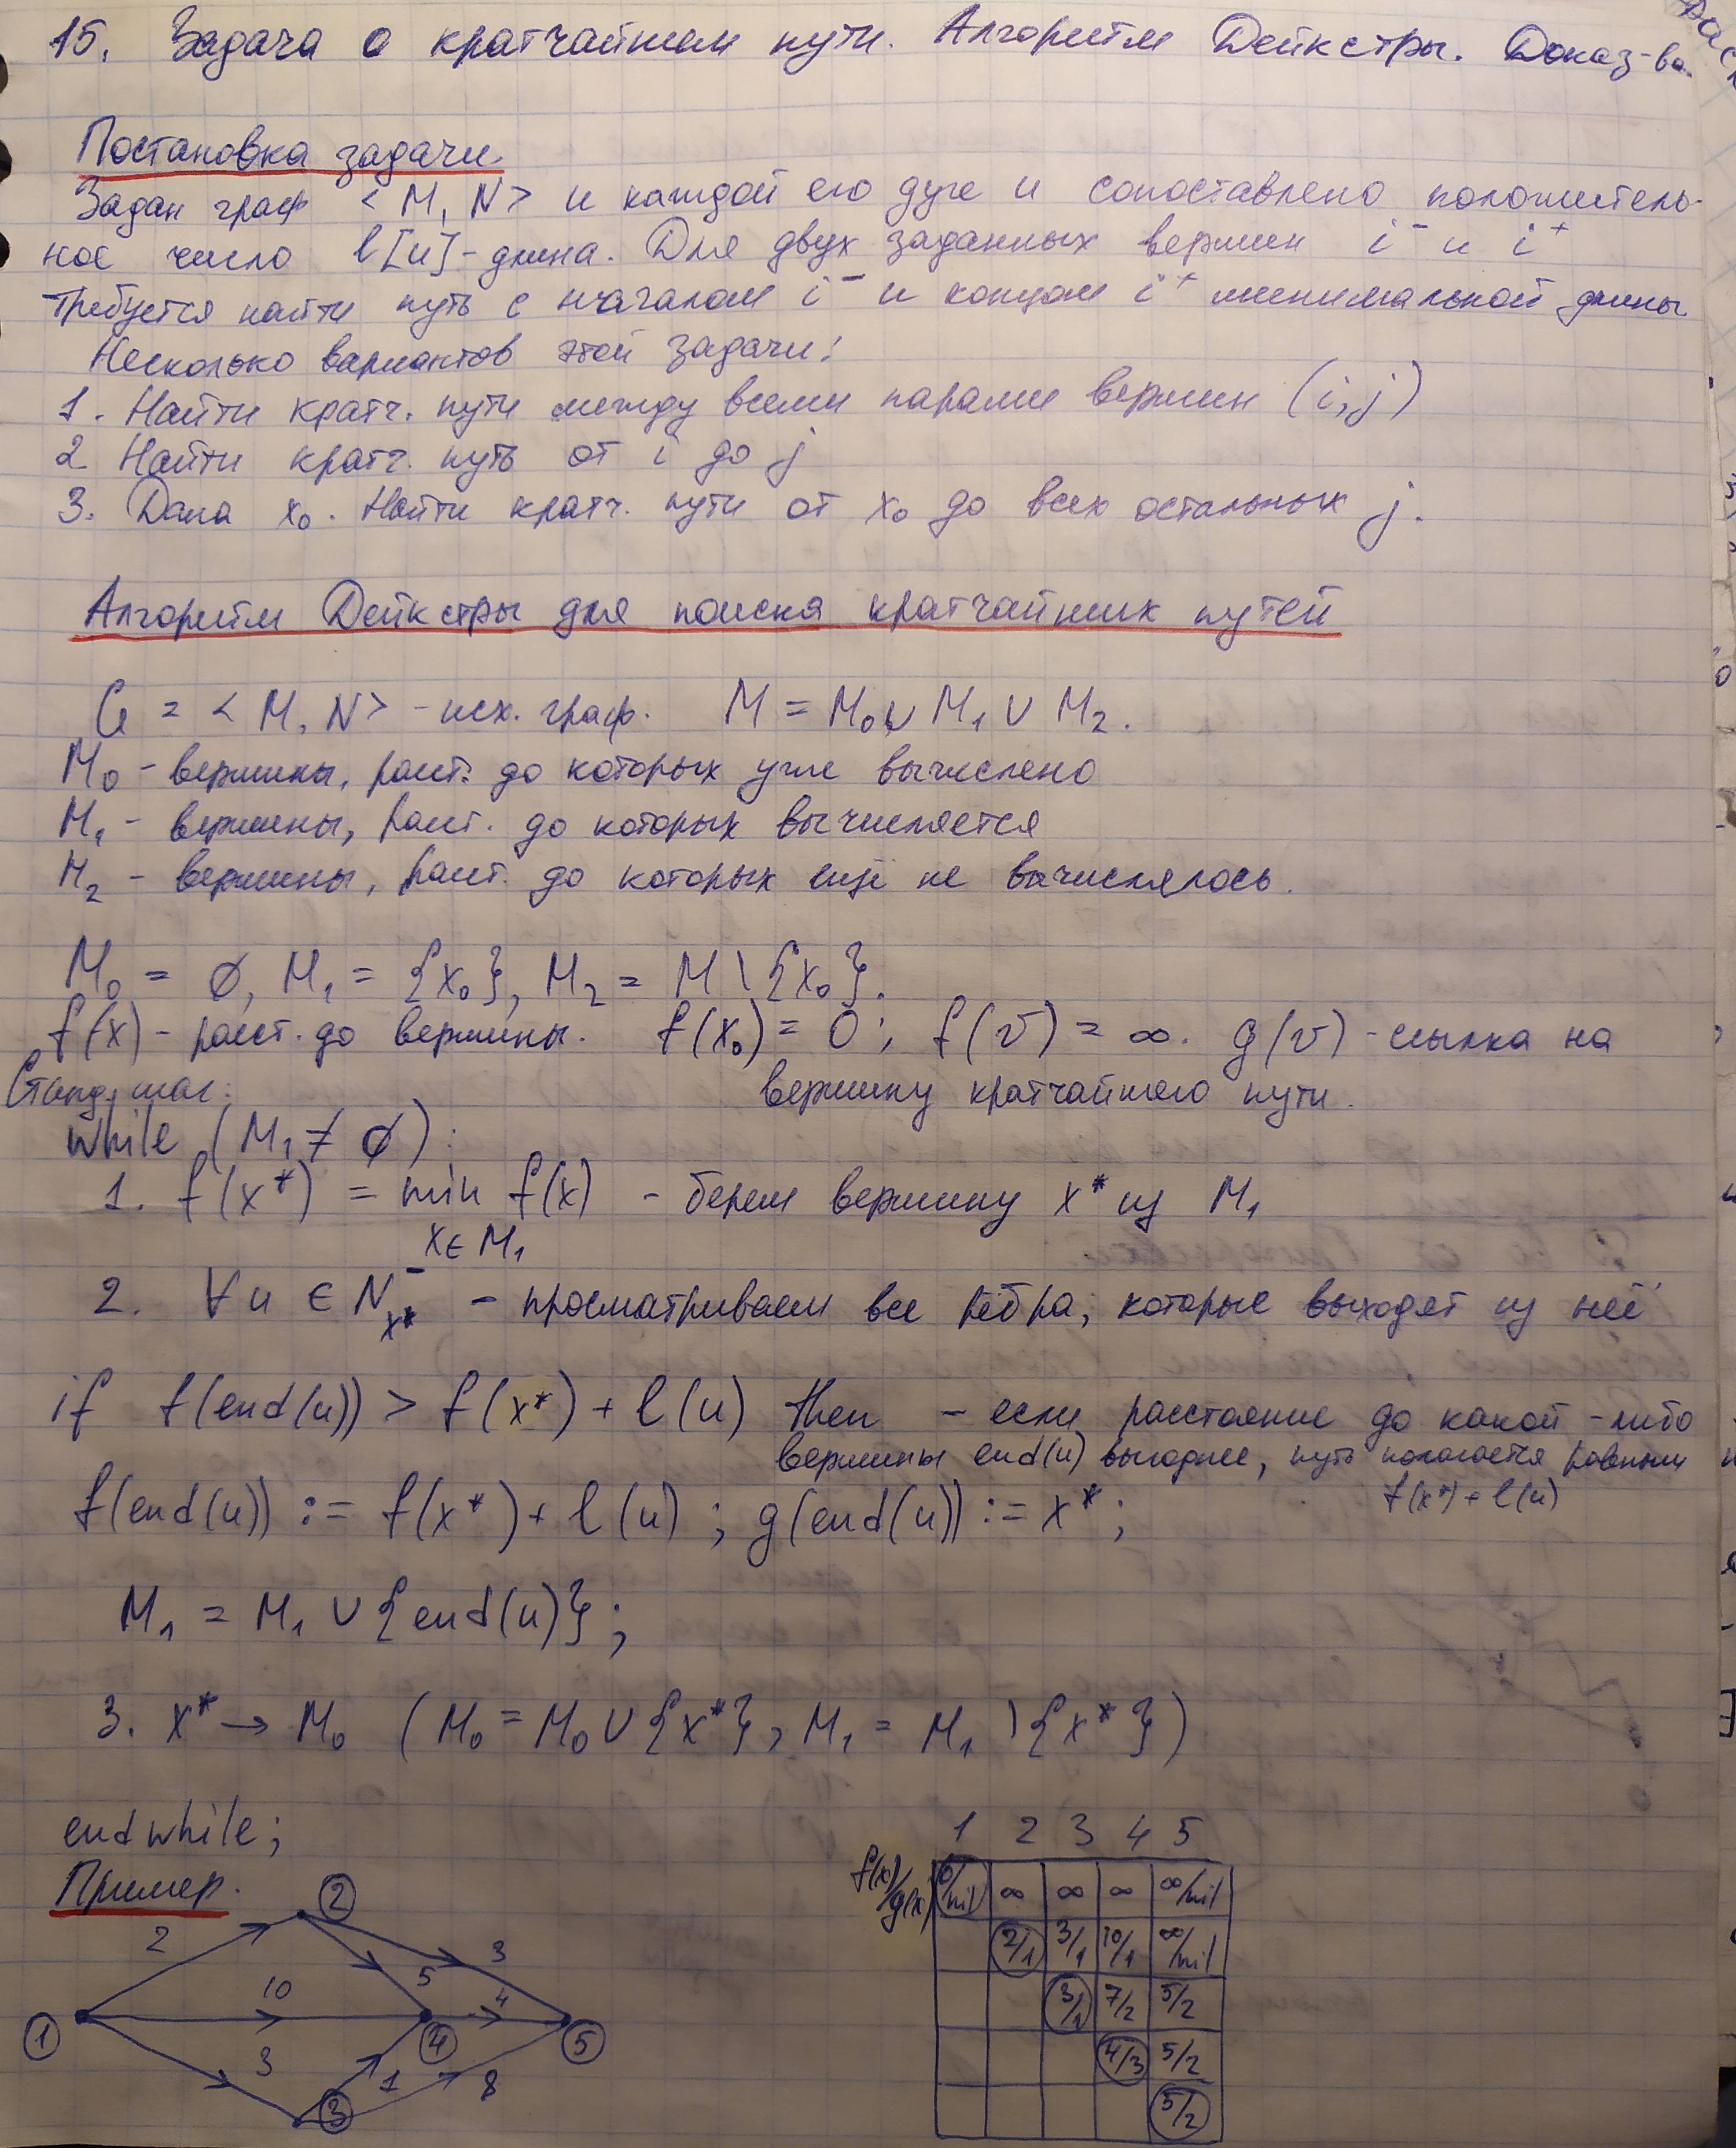 15. Задача о кратчайшем пути. Алгоритм Дейкстры. Доказ-во.
Постановка задачи.
Задан граф <M, N> и каждой его дуге u сопоставлено положитель-
ное число l[u] - длина. Для двух заданных вершин i⁻ и i⁺
требуется найти путь с началом i⁻ и концом i⁺ минимальной длины
Несколько вариантов этой задачи:
1. Найти кратч. пути между всеми парами вершин (i,j)
2. Найти кратч. путь от i до j
3. Дана x₀. Найти кратч. пути от x₀ до всех остальных j.
Алгоритм Дейкстры для поиска кратчайших путей
G = <M, N> - исх. граф. M = M₀ ∪ M₁ ∪ M₂.
M₀ - вершины, раст. до которых уже вычислено
M₁ - вершины, раст. до которых вычисляется
M₂ - вершины, раст. до которых ещё не вычислялось.
M₀ = ∅, M₁ = {x₀}, M₂ = M \ {x₀}.
f(x) - расст. до вершины. f(x₀) = 0; f(v) = ∞. g(v) - ссылка на
вершину кратчайшего пути.
Станд. шаг:
while (M₁ ≠ ∅):
1. f(x*) = min f(x) - берем вершину x* из M₁
x∈M₁
2. ∀u ∈ N⁻x* - просматриваем все рёбра, которые выходят из неё
if f(end(u)) > f(x*) + l(u) then - если расстояние до какой-либо
вершины end(u) выгоднее, путь полагается равным
f(x*) + l(u)
f(end(u)) := f(x*) + l(u); g(end(u)) := x*;
M₁ = M₁ ∪ {end(u)};
3. x* → M₀ (M₀ = M₀ ∪ {x*}, M₁ = M₁ \ {x*})
endwhile;
Пример.
2
2
3
5
10
4
1
4
5
3
1
8
3
1 2 3 4 5
f(x)/g(x) 0/nil ∞ ∞ ∞ ∞/nil
2/1 3/1 10/1 ∞/nil
3/1 7/2 5/2
4/3 5/2
5/2